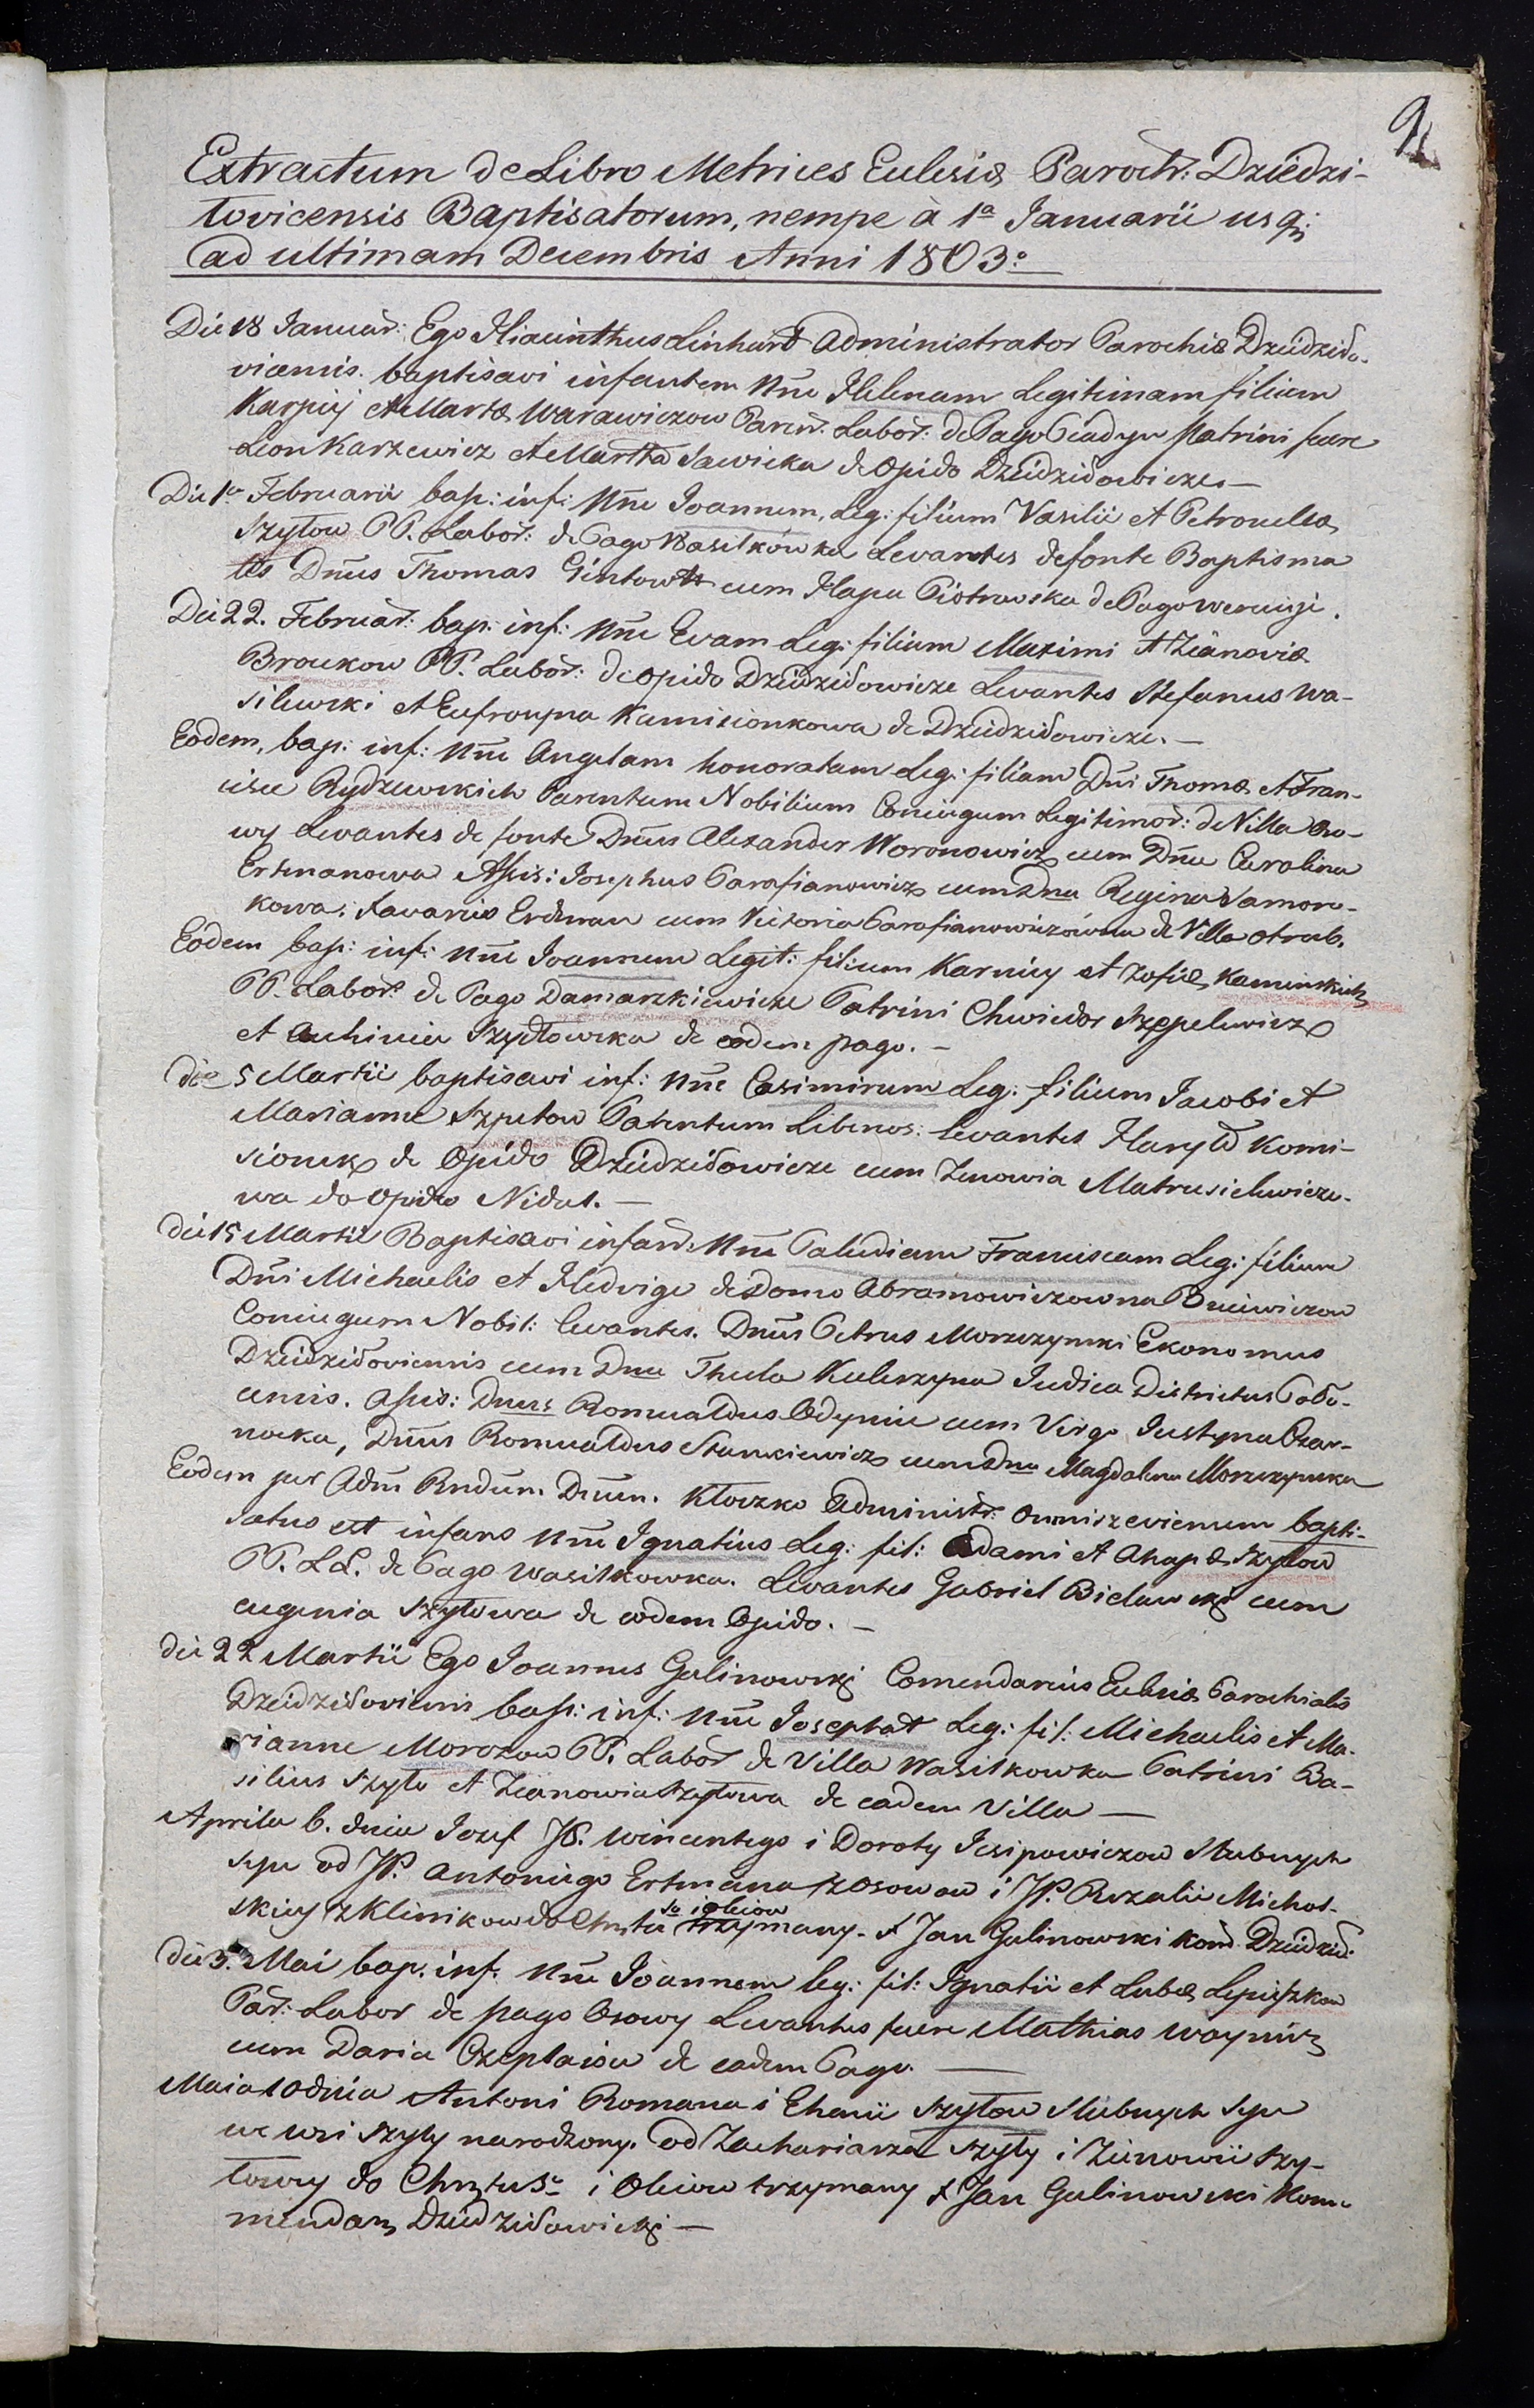 9
Extractum de Libro Metrices Eclesiæ Paroch: Dziedzi-
lovicensis Baptisatorum, nempe à 1ª Januarii usq;
ad ultimam Decembris Anni 1803:
Die 18 Januar: Ego Hiacinthus Linhard Administrator Parochiæ Dziedziło-
vicensis baptisavi infantem Nne Helenam Legitimam filiam
Karpiej et Martæ Warawiczow Paren: Labor: de Pago Patrini fuere
Leon Karzewicz et Martha Sawicka de Opido Dziedziłowicze.—
Die 1ª Februarii bap: inf: Nne Joannem, Leg: filium Vasilii et Petronellæ
Szyłow PP. Labor: de Pago Wasilkówka Levantes de fonte Baptisma
tis Dnus Thomas Gintowtt cum Hapa Piotrowska de Pago
Die 22. Februar: bap: inf: Nne Evam Leg: filiam Maximi et Zianoviæ
Broukow PP. Labor: de opido Dziedziłowicze Levantes Stefanus Wa-
silewski et Eufrozyna Kamisionkowa de Dziedziłowicze.—
Eodem, bap: inf: Nne Angelam honoratam Leg: filiam Dni Thomæ et Fran-
cisce Rydzewskich Parentum Nobilium Coniugum Legitimor: de Villa Oso-
wy Levantes de fonte Dnus Alexander Woronowicz cum Dna Carolina
Ertmanowa Assis: Josephus Parafianowicz cum Dna Regina Samoro-
kowa: Xavarius Erdman cum Victoria Parafianowiczówna de Villa otrub.
Eodem bap: inf: Nne Joannem Legit: filium Karniey et Zofiæ Kaminskich
PP. Labor: de Pago Damaszkiewicze Patrini Chwiedor Szepelewicz
et Auhinia Szydłowska de eodem pago.—
die 5 Martii baptisavi inf: Nne Casimirum Leg: filium Jacobi et
Marianne Szpetow Parentum Liberos: levantes Haryło Komi-
sionek de Opido Dziedziłowicze cum Zenowia Matrusielewiczo-
wa do opido Nidal.—
die 15 Martii Baptisavi infan: Nne Franciscam Leg: filiam
Dni Michaelis et Hedvige de Domo Abramowiczowna
Coniugum Nobil: levantes. Dnus Petrus Morszzynski Ekonomus
Dziedziłoviensis cum Dna Thecla Kulerzyna Judica Districtus
censis. Assis: Dnus Romualdus Odyniec cum Virgo Justyna Czar-
nocka, Dnus Romualdus Stankiewicz cum Dna Magdalena Morszzynska
Eodem per Adm Rndum Dnum. Kłoczko Administr: Omniszeviensem bapti-
satus est infans Nne Ignatius Leg: fil: Adami et Ahapæ Szyłow
PP. LL. de Pago Wasilkowka. Levantes Gabriel Bielawski cum
eugenia Szyłowa de eodem Opido.—
die 22 Martii Ego Joannes Galinowski Comendarius Eclesiæ Parochialis
Dziedziłoviensis bap: inf: Nne Josephat Leg: fil: Michaelis et Ma-
rianne Morozow PP. Labor de Villa Wasilkowka Patrini Ba-
silius Szyło et Zianowia Szyłowa de eadem Villa —
Aprila 6. dnia Jozef JP. Wincentego i Doroty Jesipowiczow Slubnych
syn od JP. Antoniego Ertmana z Osowow i JP. Rozalii Michal-
skiey z Klinikow do Chrztu So i oleiow trzymany. X Jan Galinowski Kom Dziedził:
die 3. Mai bap. inf. Nne Joannem leg: fil: Ignatii et Lubæ Lepieszkow
Par: Labor de pago Osowy Levantes fuere Mathias Woynicz
cum Daria Czeplaiou de eadem Pago.—
Maia 10 dnia Antoni Romana i Ehenii Szyłow Slubnych syn
we wsi Szyły narodzony. od Zachariasza Szyły i Zienowii Szy-
łowy do Chrztu So i Oleiow trzymany X Jan Galinowski Kom-
mendarz Dziedziłowicki —